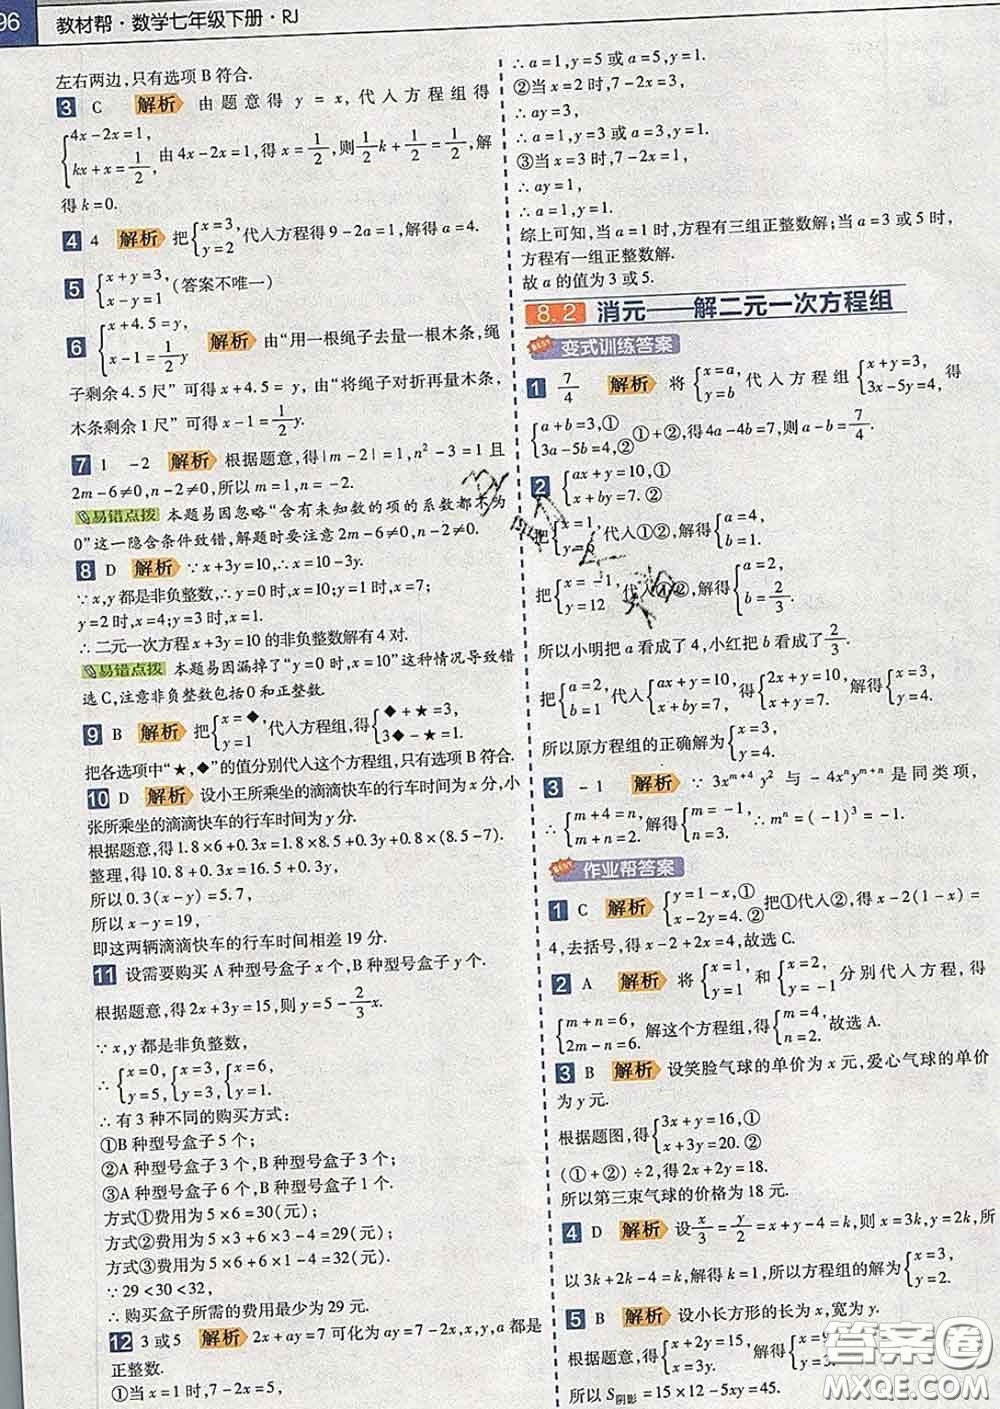 96 教材帮·数学七年级下册·RJ
左右两边,只有选项 B 符合.
3 C 解析 由题意得 y = x,代入方程组得
{4x-2x=1, kx+x=1/2, 由 4x-2x=1,得 x=1/2,则 1/2k+1/2=1/2,解
得 k=0.
4 4 解析 把{x=3, y=2 代入方程得 9-2a=1,解得 a=4.
5 {x+y=3, x-y=1 (答案不唯一)
6 {x+4.5=y, x-1=1/2y 解析 由“用一根绳子去量一根木条,绳
子剩余 4.5 尺”可得 x+4.5=y,由“将绳子对折再量木条,
木条剩余 1 尺”可得 x-1=1/2y.
7 1 -2 解析 根据题意,得|m-2|=1,n²-3=1 且
2m-6≠0,n-2≠0,所以 m=1,n=-2.
易错点拨 本题易因忽略“含有未知数的项的系数都不为
0”这一隐含条件致错,解题时要注意 2m-6≠0,n-2≠0.
8 D 解析 ∵x+3y=10,∴x=10-3y.
∵x,y 都是非负整数,∴y=0 时,x=10;y=1 时,x=7;
y=2 时,x=4;y=3 时,x=1.
∴二元一次方程 x+3y=10 的非负整数解有 4 对.
易错点拨 本题易因漏掉了“y=0 时,x=10”这种情况导致错
选 C,注意非负整数包括 0 和正整数.
9 B 解析 把{x=◆, y=1 代入方程组,得{◆+★=3, 3◆-★=1.
把各选项中“★,◆”的值分别代入这个方程组,只有选项 B 符合.
10 D 解析 设小王所乘坐的滴滴快车的行车时间为 x 分,小
张所乘坐的滴滴快车的行车时间为 y 分.
根据题意,得 1.8×6+0.3x=1.8×8.5+0.3y+0.8×(8.5-7).
整理,得 10.8+0.3x=16.5+0.3y,
所以 0.3(x-y)=5.7,
所以 x-y=19,
即这两辆滴滴快车的行车时间相差 19 分.
11 设需要购买 A 种型号盒子 x 个,B 种型号盒子 y 个.
根据题意,得 2x+3y=15,则 y=5-2/3x.
∵x,y 都是非负整数,
∴{x=0, y=5, {x=3, y=3, {x=6, y=1.
∴有 3 种不同的购买方式:
①B 种型号盒子 5 个;
②A 种型号盒子 3 个,B 种型号盒子 3 个;
③A 种型号盒子 6 个,B 种型号盒子 1 个.
方式①费用为 5×6=30(元);
方式②费用为 5×3+6×3-4=29(元);
方式③费用为 5×6+6×1-4=32(元).
∵29<30<32,
∴购买盒子所需的费用最少为 29 元.
12 3 或 5 解析 2x+ay=7 可化为 ay=7-2x,x,y,a 都是
正整数.
①当 x=1 时,7-2x=5,
∴a=1,y=5 或 a=5,y=1.
②当 x=2 时,7-2x=3,
∴ay=3,
∴a=1,y=3 或 a=3,y=1.
③当 x=3 时,7-2x=1,
∴ay=1,
∴a=1,y=1.
综上可知,当 a=1 时,方程有三组正整数解;当 a=3 或 5 时,
方程有一组正整数解.
故 a 的值为 3 或 5.
8.2 消元——解二元一次方程组
变式训练答案
1 7/4 解析 将{x=a, y=b 代入方程组{x+y=3, 3x-5y=4, 得
{a+b=3,① 3a-5b=4,② ①+②,得 4a-4b=7,则 a-b=7/4.
2 {ax+y=10,① x+by=7.②
把{x=1, y=6 代入①②,解得{a=4, b=1.
把{x=-1, y=12 代入①②,解得{a=2, b=2/3.
所以小明把 a 看成了 4,小红把 b 看成了 2/3.
把{a=2, b=1 代入{ax+y=10, x+by=7, 得{2x+y=10, x+y=7, 解得{x=3, y=4.
所以原方程组的正确解为{x=3, y=4.
3 -1 解析 ∵3x^{m+4}y² 与 -4x^{n}y^{m+n} 是同类项,
∴{m+4=n, m+n=2. 解得{m=-1, n=3. ∴m^{n}=(-1)³=-1.
作业帮答案
1 C 解析 {y=1-x,① x-2y=4.② 把①代入②,得 x-2(1-x)=
4,去括号,得 x-2+2x=4,故选 C.
2 A 解析 将{x=1, y=1 和{x=2, y=2 分别代入方程,得
{m+n=6, 2m-n=6. 解这个方程组,得{m=4, n=2. 故选 A.
3 B 解析 设笑脸气球的单价为 x 元,爱心气球的单价
为 y 元.
根据题图,得{3x+y=16,① x+3y=20.②
(①+②)÷2,得 2x+2y=18.
所以第三束气球的价格为 18 元.
4 D 解析 设 x/3=y/2=x+y-4=k,则 x=3k,y=2k,所
以 3k+2k-4=k,解得 k=1,所以方程组的解为{x=3, y=2.
5 B 解析 设小长方形的长为 x,宽为 y.
根据题意,得{x+2y=15, x=3y. 解得{x=9, y=3.
所以 S阴影=15×12-5xy=45.
答案圈
MXQE.COM